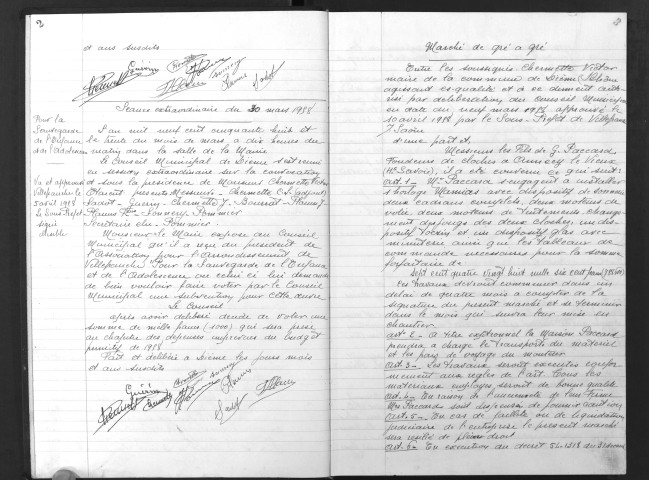 2
et ans susdits
Guérin
Séance extraordinaire du 30 mars 1958
Pour la
Sauvegarde
de l'Enfance
et de l'Adolescence
L'an mil neuf cent cinquante huit et
le trente du mois de mars à dix heures du
matin dans la salle de la Mairie
Le Conseil Municipal de Dième s'est réuni
en session extraordinaire sur la convocation
Vu et approuvé
Villefranche le
5 avril 1958
Le Sous-Préfet
signé
illisible
et sous la présidence de Monsieur Chermette Victor
Etaient présents Messieurs Chermette C.
Sadot - Guérin - Chermette J. - Bourrat -
Secrétaire élu
Monsieur le Maire expose au Conseil
Municipal qu'il a reçu du président de
l'association pour l'arrondissement de
Villefranche Pour la Sauvegarde de l'Enfance
et de l'Adolescence ou celui ci lui demande
de bien vouloir faire voter par le Conseil
Municipal une subvention pour cette œuvre
Le Conseil
après avoir délibéré décide de voter une
somme de mille francs (1000) qui sera prise
au chapitre des dépenses imprévues du budget
primitif de 1958
Fait et délibéré à Dième les jours mois
et ans susdits
Guérin
3
Marché de gré à gré
Entre les soussignés Chermette Victor
maire de la commune de Dième (Rhône)
agissant es-qualité et à ce dûment autorisé
par délibération du Conseil Municipal
en date du neuf mars 1958 approuvé le
10 avril 1958 par le Sous-Préfet de Villefranche
s/ Saône
d'une part et,
Messieurs les Fils de G. Paccard
Fondeurs de cloches à Annecy le Vieux
(Hte Savoie), il a été convenu ce qui suit:
art. 1 - Mrs Paccard s'engagent à installer
l'horloge Mamias avec dispositif de sonnerie
deux cadrans complets, deux moteurs de
volée deux moteurs de tintements, changement
des dispositifs des deux cloches, un dispositif
et un dispositif glas avec
minuterie ainsi que les tableaux de
commande nécessaires pour la somme
forfaitaire de
sept cent quatre vingt huit mille six cent francs (788600)
Les travaux devront commencer dans un
délai de quatre mois à compter de la
signature du présent marché et se terminer
dans le mois qui suivra leur mise en
chantier.
art. 2 - A titre exceptionnel la Maison Paccard
prendra à charge le transports du matériel
et les frais de voyage du monteur
art. 3 - Les travaux seront exécutés conformément
aux règles de l'art. Tous les
matériaux employés seront de bonne qualité
art. 4 - En raison de l'ancienneté de leur firme
Mrs Paccard sont dispensés de fournir caution
art. 5 - En cas de faillite ou de liquidation
judiciaire de l'entreprise le présent marché
sera résilié de plein droit
art. 6 - En exécution du décret